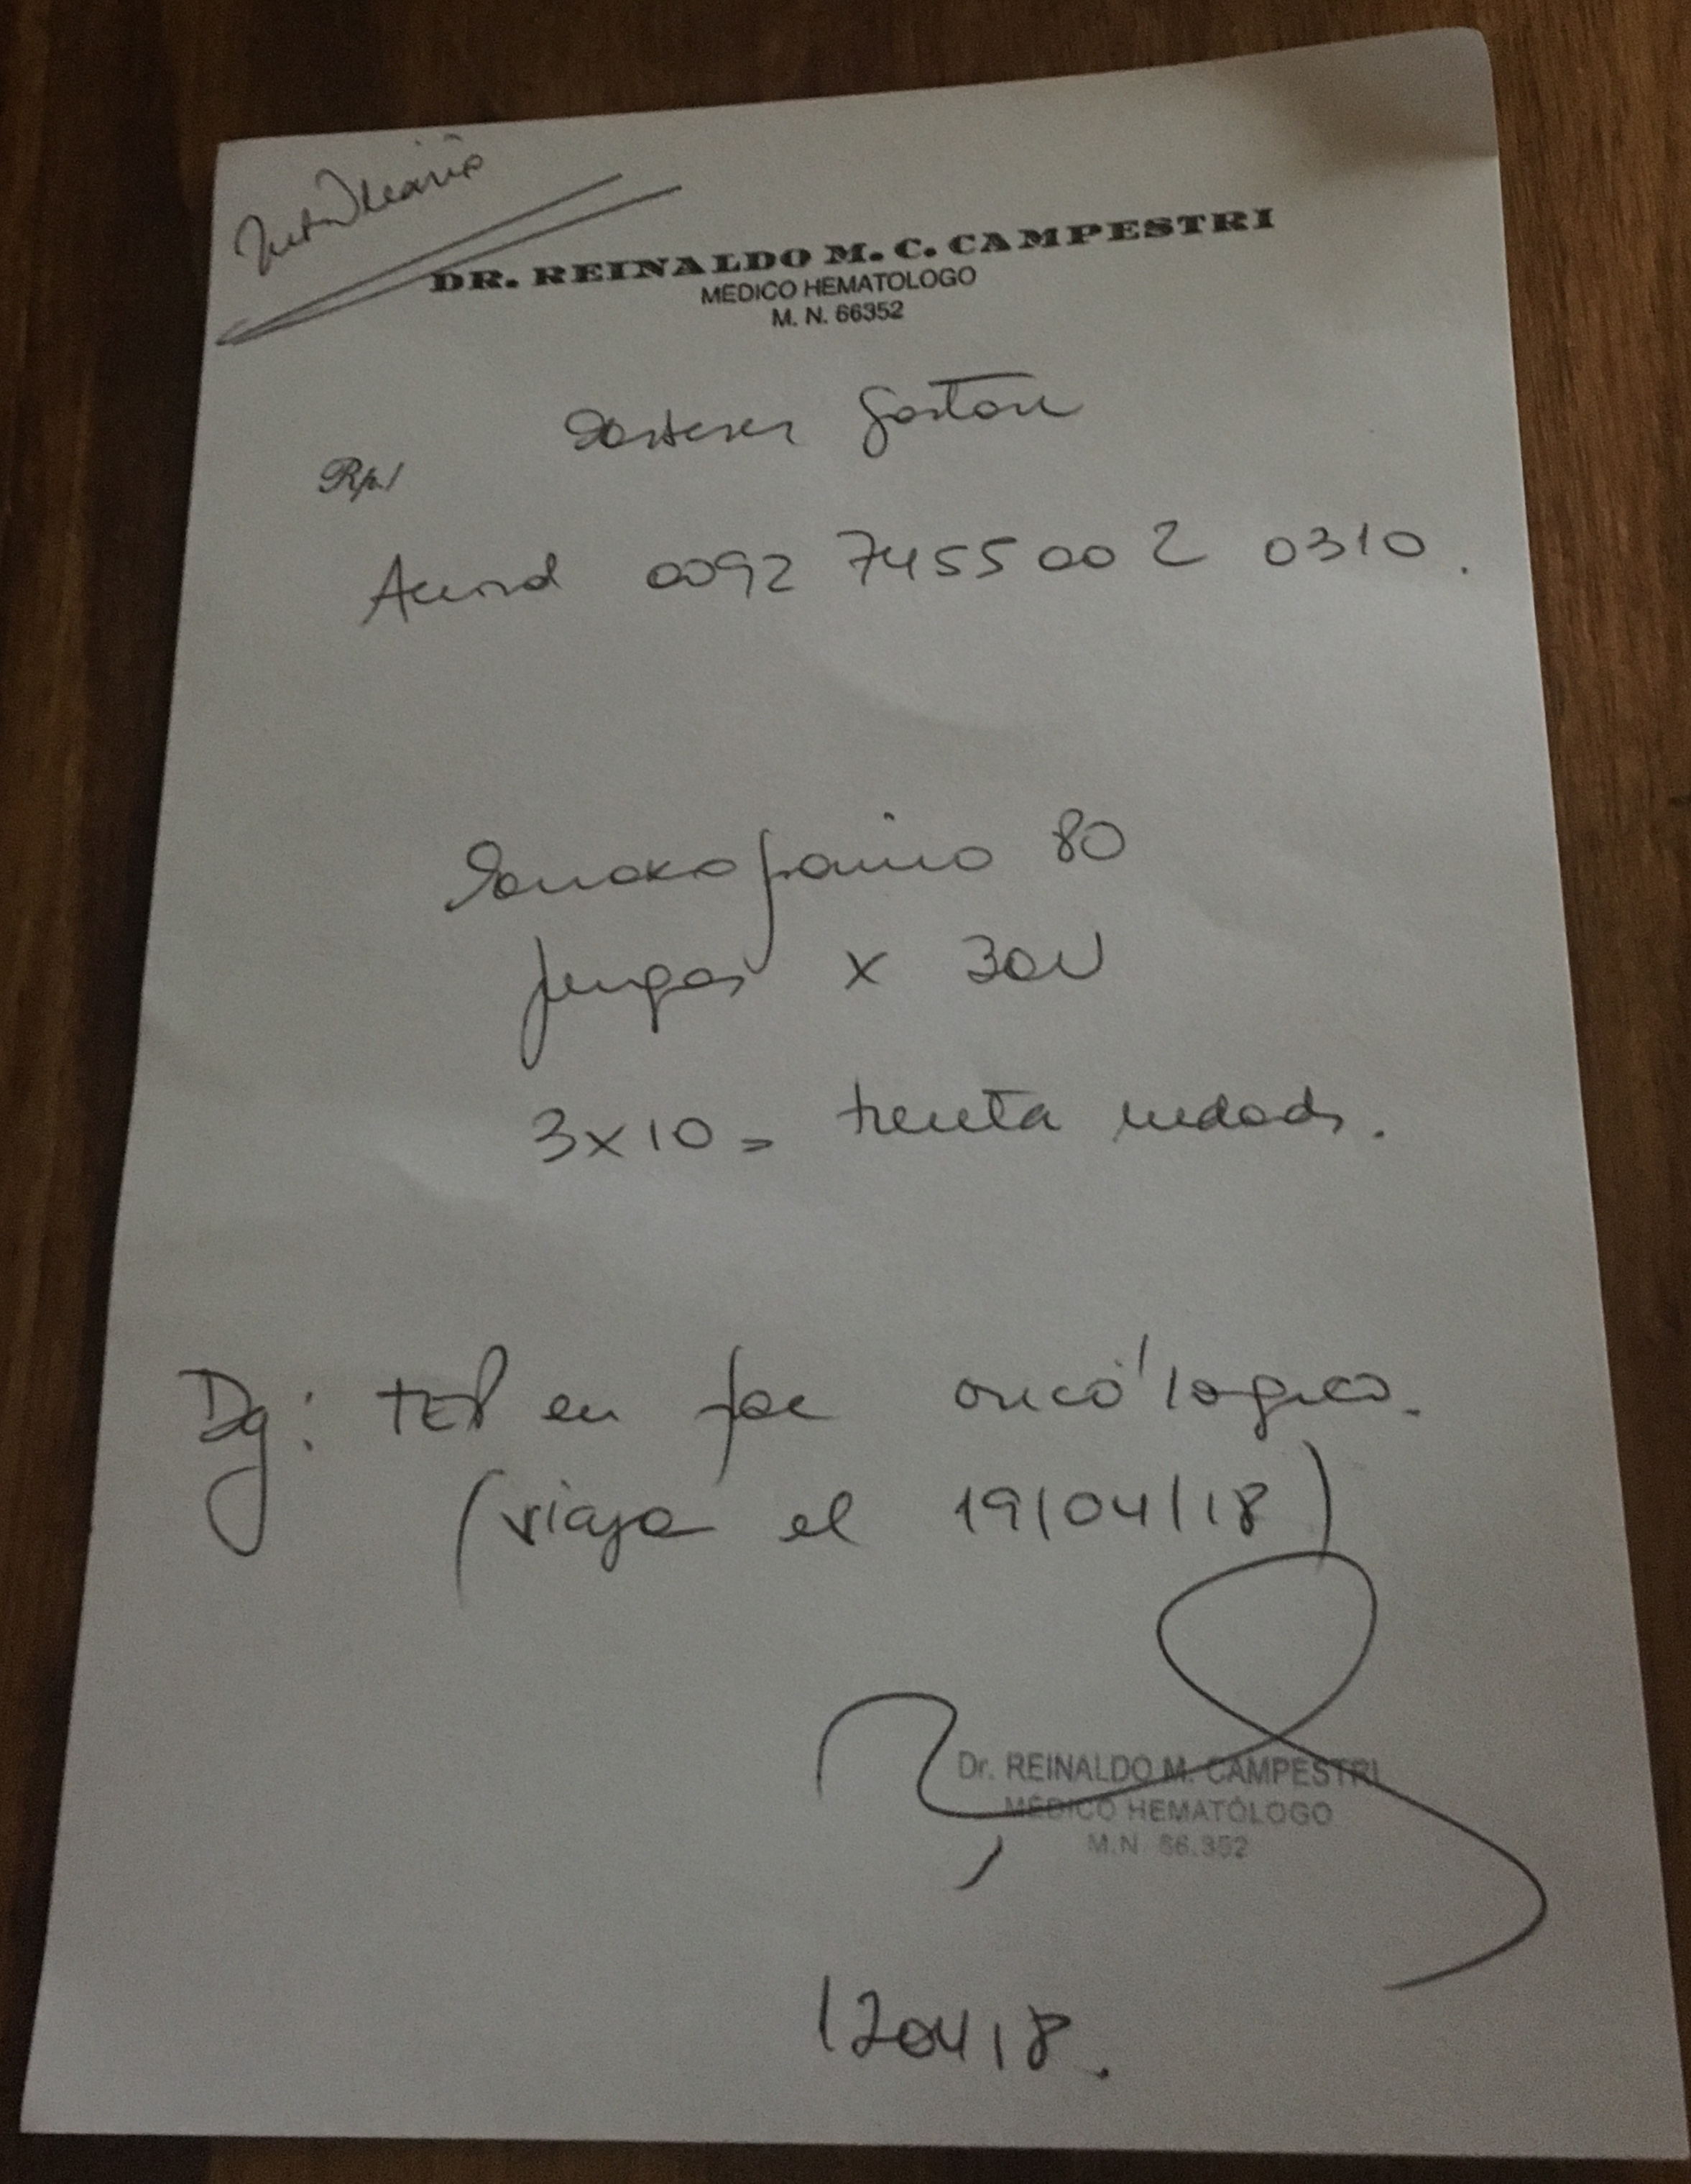 DR. REINALDO M. C. CAMPESTRI
MEDICO HEMATOLOGO
M. N. 66352
Gastón
Rp./
Acord 0092 7455 00 2 0310.
Enoxaparina 80
jeringas x 30U
3x10 = treinta unidads.
Dg: TEP en pac oncólogico.
(viaja el 19/04/18)
Dr. REINALDO M. CAMPESTRI
MEDICO HEMATÓLOGO
M.N. 66.352
120418.